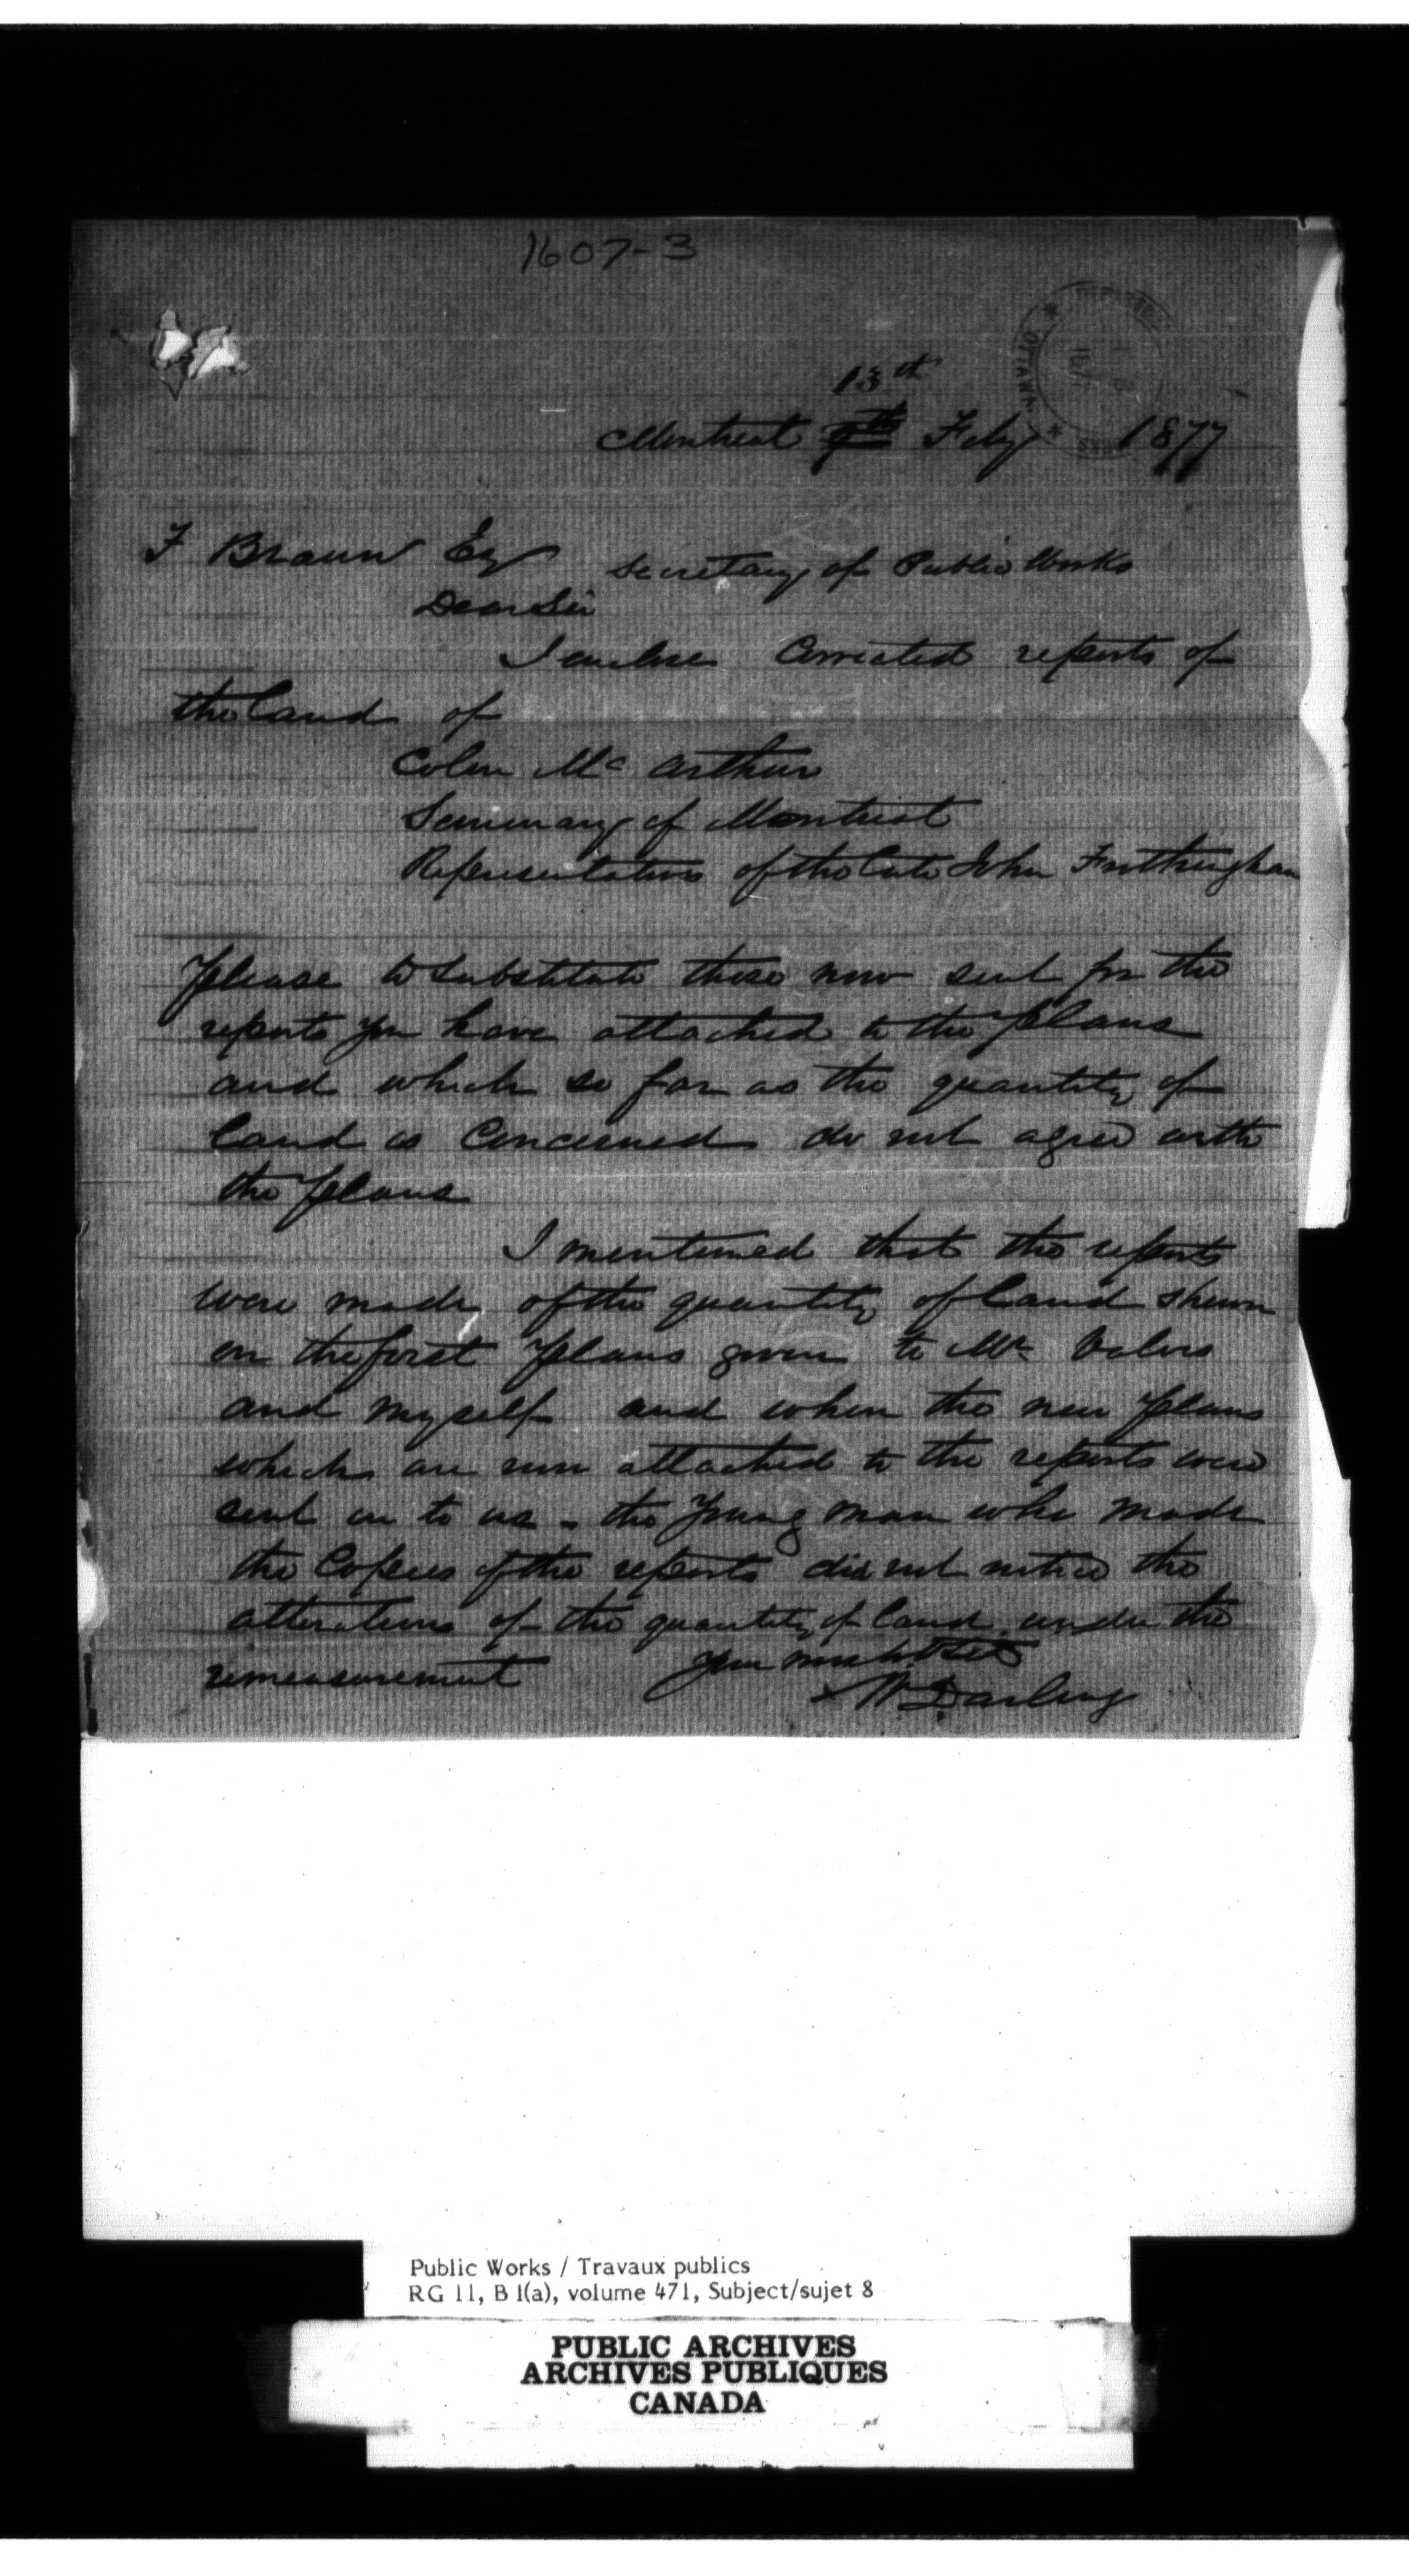 1607-3
13th
Montreal Feby 1877
F Braun Esq Secretary of Public Works
Dear Sir
I enclose Corrected reports of
the land of
Colin Mc Arthur
Seminary of Montreal
Representatives of the late John Frothingham
Please to substitute these now sent for the
reports you have attached to the plans
and which so far as the quantity of
land is Concerned do not agree with
the plans
I mentioned that the reports
were made of the quantity of land shewn
on the first plans given to Mr.
and myself and when the new plans
which are now attached to the reports were
sent in to us - the young man who made
the Copies of the reports did not notice the
alterations of the quantity of land under the
remeasurement
W Darling
OTTAWA
Public Works / Travaux publics
RG 11, B 1(a), volume 471, Subject/sujet 8
PUBLIC ARCHIVES
ARCHIVES PUBLIQUES
CANADA